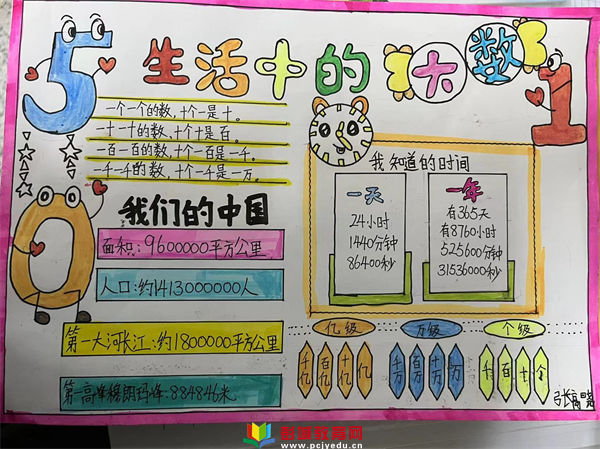 生活中的大数
一个一个的数,十个一是十。
一十一十的数,十个十是百。
一百一百的数,十个一百是一千。
一千一千的数,十个一千是一万。
我们的中国
面积:9600000平方公里
人口:约1413000000人
第一大河长江:约1800000平方公里
第一高峰穆朗玛峰:884846米
我知道的时间
一天
24小时
1440分钟
86400秒
一年
有365天
有8760小时
525600分钟
31536000秒
亿级 万级 个级
千亿 百亿 十亿 亿
千万 百万 十万 万
千 百 十 个
5
0
1
www.pcjyedu.cn